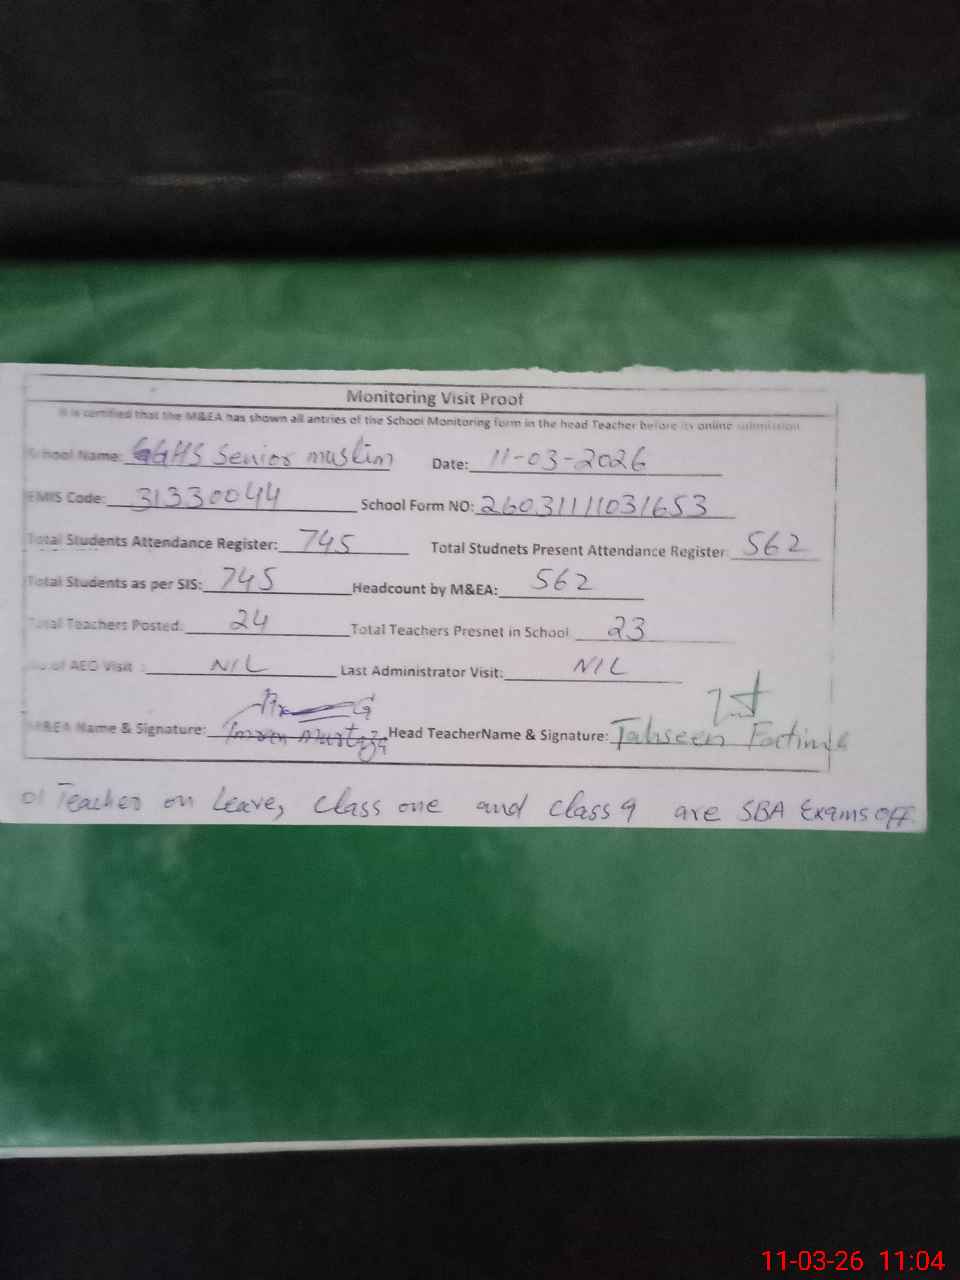 Monitoring Visit Proof
It is certified that the M&EA has shown all antries of the School Monitoring form in the head Teacher before its online submission
School Name: GGHS Senior muslim Date: 11-03-2026
EMIS Code: 31330044 School Form NO: 26031111031653
Total Students Attendance Register: 745 Total Studnets Present Attendance Register: 562
Total Students as per SIS: 745 Headcount by M&EA: 562
Total Teachers Posted: 24 Total Teachers Presnet in School 23
No of AEO Visit : NIL Last Administrator Visit: NIL
M&EA Name & Signature: Imran Murtaza Head TeacherName & Signature: Tahseen Fatima
01 Teacher on Leave, Class one and Class 9 are SBA Exams off.
11-03-26 11:04